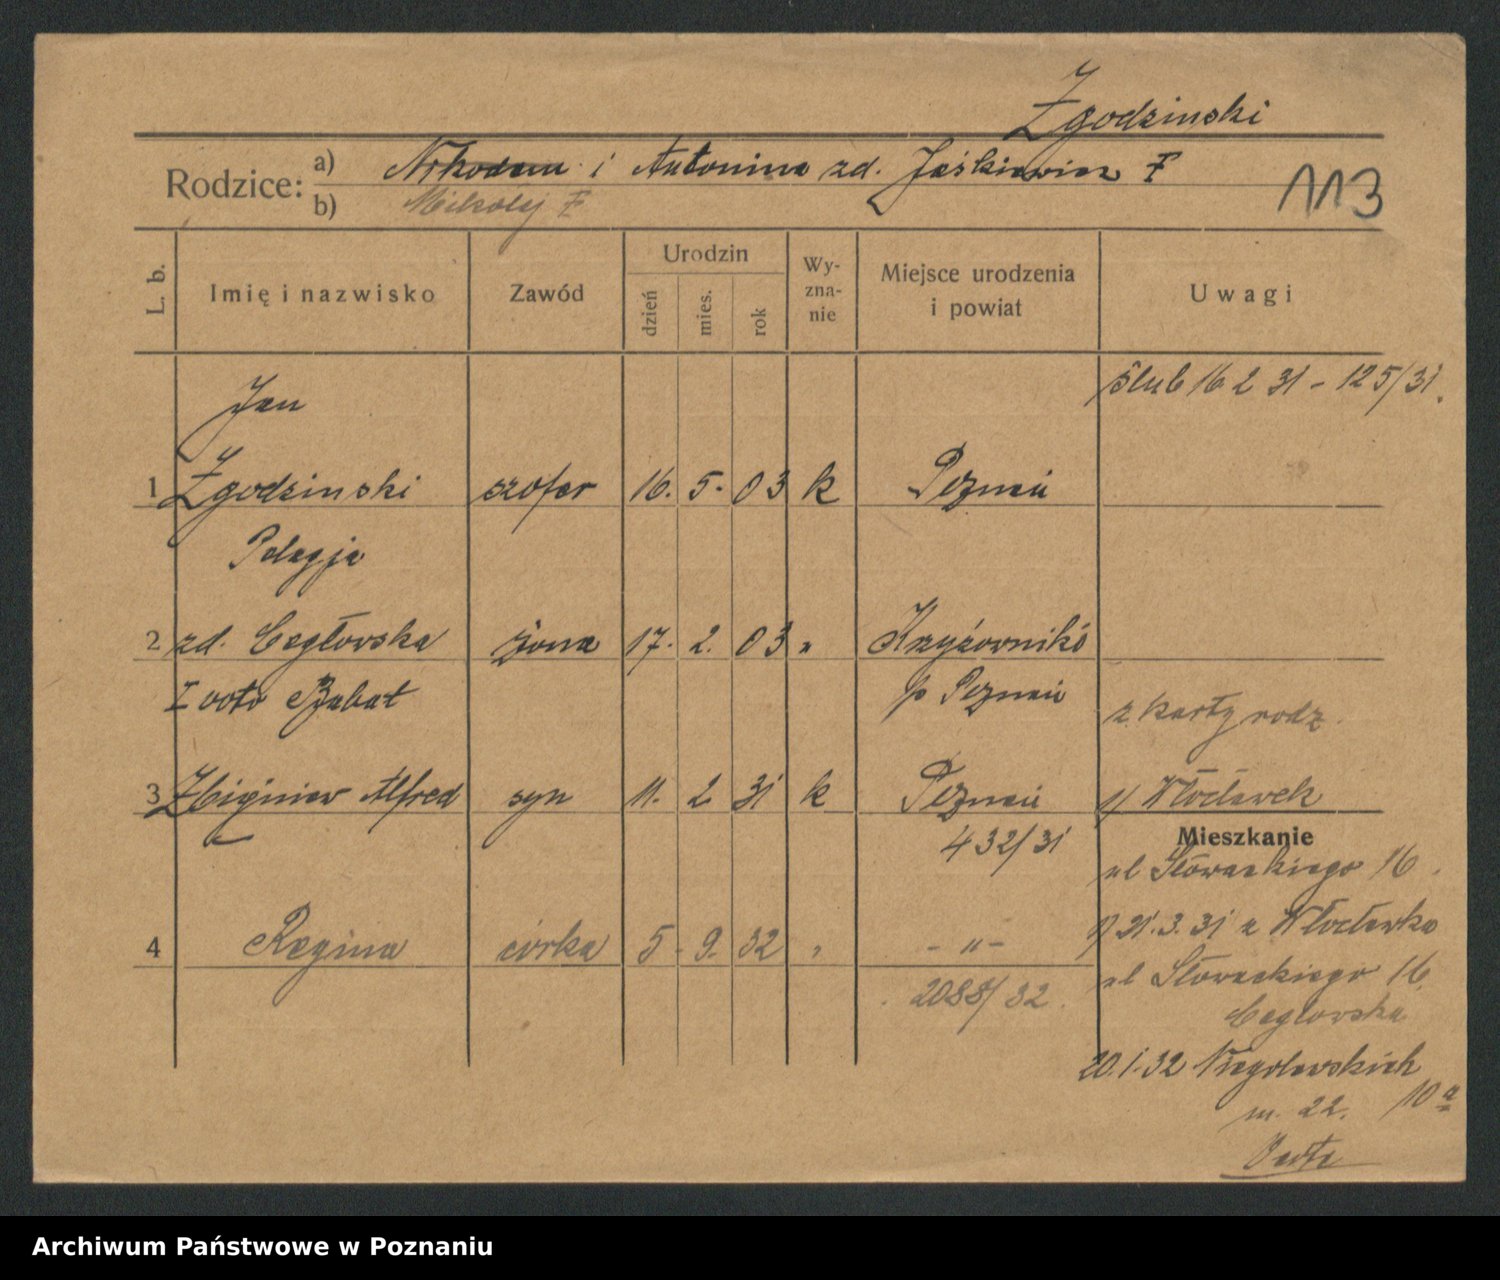 Zgodzinski
Rodzice: a) Nikodem i Antonina zd. Jaśkiewicz
b) Mikołaj
113
L. b.
Imię i nazwisko
Zawód
Urodzin
dzień
mies.
rok
Wy-
zna-
nie
Miejsce urodzenia
i powiat
Uwagi
ślub 16 2 31 - 125/31.
Jan
1 Zgodzinski szofer 16. 5. 03 k Poznań
Pelagja
2 zd. Cegłowska żona 17. 2. 03 " Krzyżowniki
I voto Bzabat p Poznań
z karty rodz.
3 Zbigniew Alfred syn 11. 2 31 k Poznań
z/ Włocławek
432/31
Mieszkanie
ul Słowackiego 16.
31.3.31 z Włocławka
4 Regina córka 5. 9. 32 " - " -
ul Słowackiego 16
2088/32.
Cegłowska
20.1.32 Niegolewskich
m. 22. 10a
Verte
Archiwum Państwowe w Poznaniu